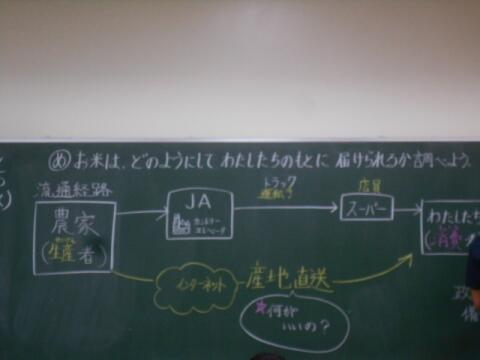 め お米は、どのようにして わたしたちのもとに 届けられるか調べよう。
流通経路
農家
(生産者)
JA
カントリー
エレベーター
トラック
運転手
店員
スーパー
わたしたち
(消費
インターネット
産地直送
☆何が
いいの？
政
備